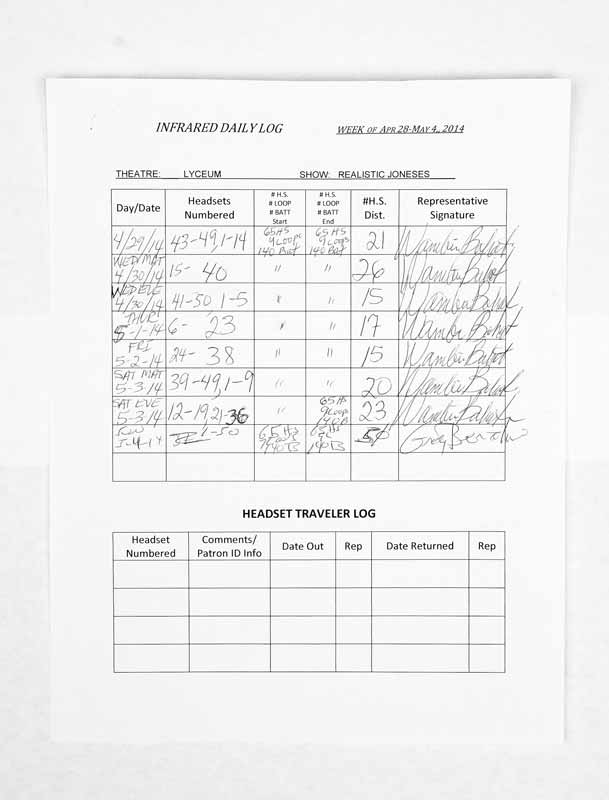 INFRARED DAILY LOG WEEK OF APR 28-MAY 4, 2014
THEATRE: LYCEUM SHOW: REALISTIC JONESES
Day/Date Headsets Numbered # H.S. # LOOP # BATT Start # H.S. # LOOP # BATT End #H.S. Dist. Representative Signature
4/29/14 43-49,1-14 65 HS 9 Loops 140 Bat 65 HS 9 Loops 140 Bat 21
WED MAT 4/30/14 15- 40 " " 26
WED EVE 4/30/14 41-50 1-5 " " 15
THUR 5-1-14 6- 23 " " 17
FRI 5-2-14 24- 38 " " 15
SAT MAT 5-3-14 39-49,1-9 " " 20
SAT EVE 5-3-14 12-19,21-36 " 65 HS 9 Loops 140 B 23
SUN 5-4-14 1-50 65 HS 140 B 65 HS 140 B 50
HEADSET TRAVELER LOG
Headset Numbered Comments/ Patron ID Info Date Out Rep Date Returned Rep